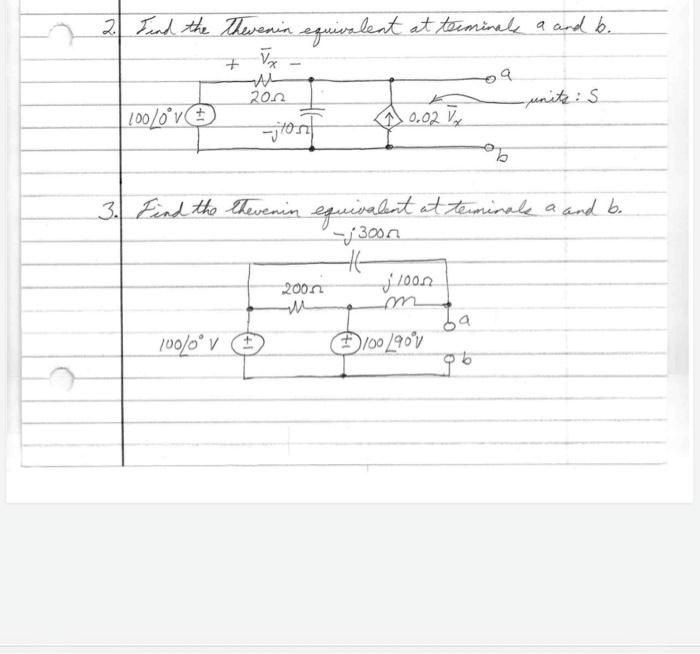 2. Find the Thevenin equivalent at terminals a and b.
+ V̅x −
20Ω
a
100∠0° V
+
−
−j10Ω
0.02 V̅x
units: S
b
3. Find the thevenin equivalent at terminals a and b.
−j300Ω
200Ω
j100Ω
a
100∠0° V
+
−
+
−
100∠90° V
b